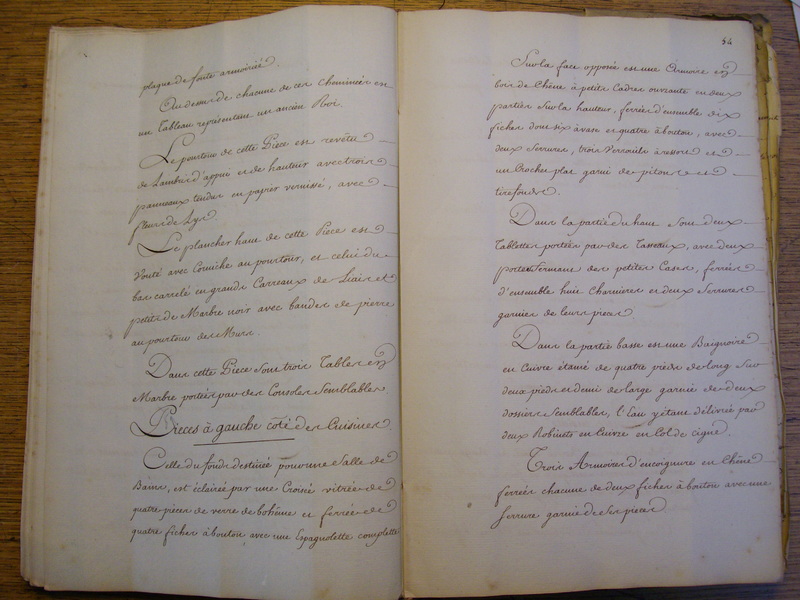 plaque de fonte armoiriée.
Au dessus de chacune de ces cheminées est
un Tableau représentant un ancien Roi.
Le pourtour de cette Piece est revêtu
de Lambris d'appui et de hauteur avec trois
panneaux tendus en papier vernissé, avec
fleurs de Lys.
Le plancher haut de cette Piece est
vouté avec Corniche au pourtour, et celui du
bas carrelé en grands Carreaux de Liais et
petits de Marbre noir avec bandes de pierre
au pourtour des Murs.
Dans cette Piece sont trois Tables en
Marbre portées par des Consoles semblables
Pieces à gauche coté des Cuisines.
Celle du fond destinée pour une Salle de
Bains, est éclairée par une Croisée vitrée de
quatre pieces de verre de bohême et ferrée de
quatre fiches à bouton avec une Espagnolette complette
54
Sur la face opposée est une Armoire en
bois de Chêne à petits Cadres ouvrante en deux
parties sur la hauteur, ferrées d'ensemble dix
fiches dont six à vase et quatre à bouton, avec
deux serrures, trois Verrouils à ressort et
un Crochet plat garni de pitons et
tirefonds.
Dans la partie du haut sont deux
Tablettes portées par des Tasseaux, avec deux
portes fermant des petites Cases, ferrées
d'ensemble huit Charnieres et deux Serrures
garnies de leurs pieces
Dans la partie basse est une Baignoire
en Cuivre étamé de quatre pieds de long sur
deux pieds et demi de large garnie de deux
dossiers semblables, l'Eau y étant délivrée par
deux Robinets en Cuivre en Col de cigne.
Trois Armoires d'encoignure en Chêne
ferrées chacune de deux fiches à bouton avec une
serrure garnie de ses pieces